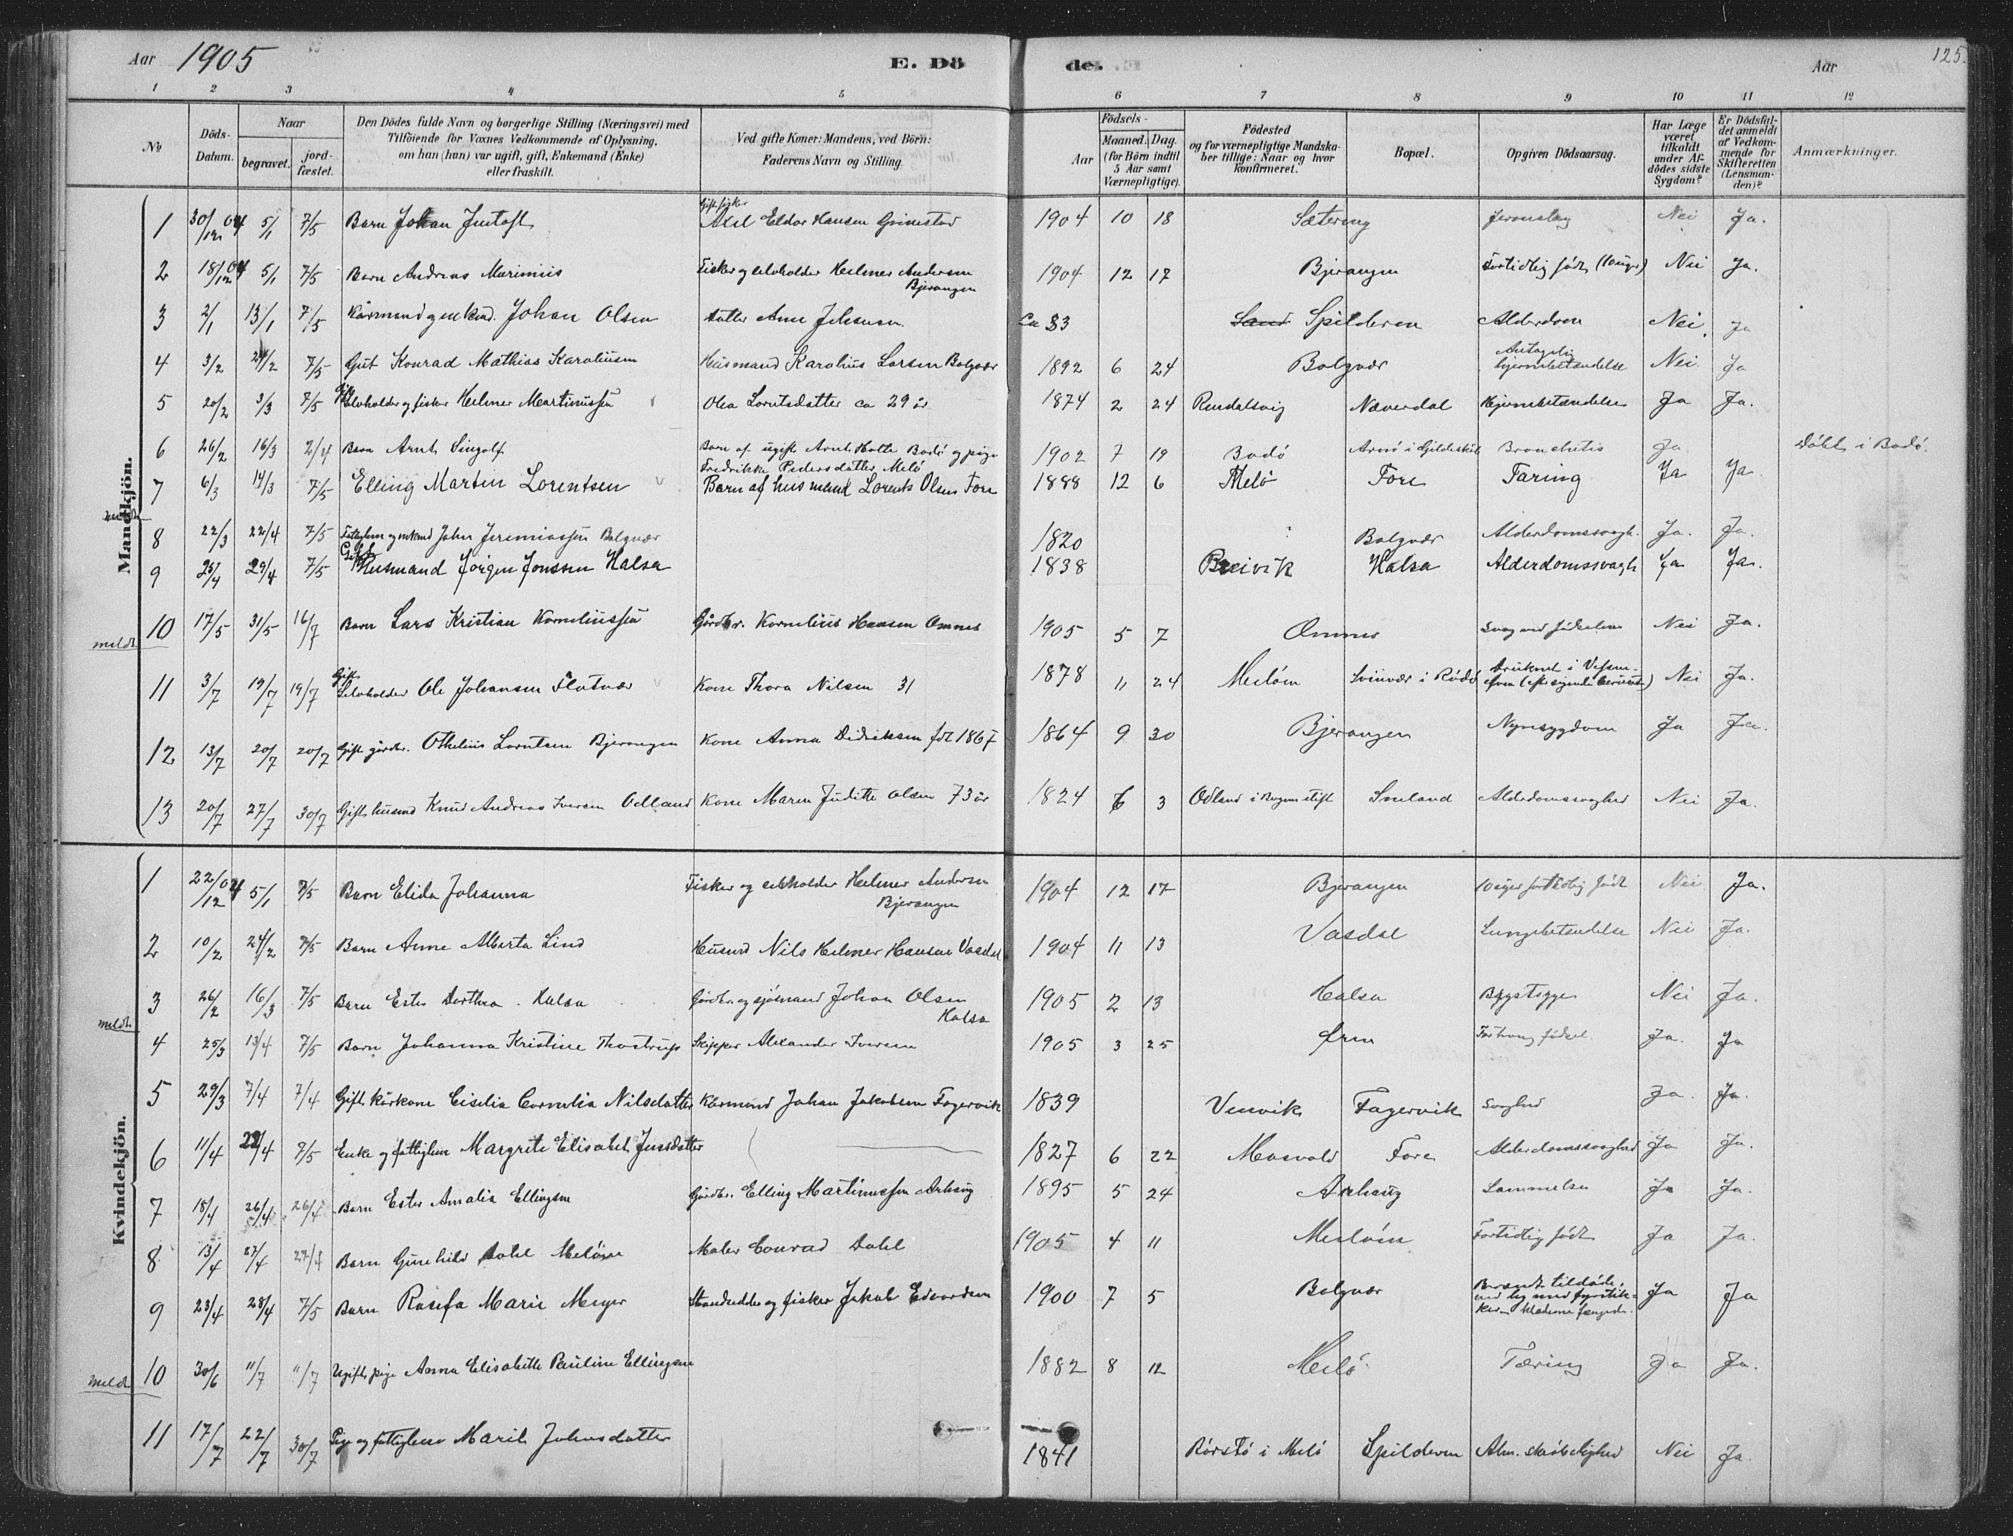 Aar 1905 E. Dö de. Aar 125.
1 2 3 4 5 6 7 8 9 10 11 12
No. Döds-Datum. Naar begravet. jordfæstet. Den Dödes fulde Navn og borgerlige Stilling (Næringsvei) med Tilföiende for Voxnes Vedkommende af Oplysning, om han (hun) var ugift, gift, Enkemand (Enke) eller fraskilt. Ved gifte Koner: Mandens, ved Börn: Faderens Navn og Stilling. Födsels- Aar Maaned. Dag. (for Börn indtil 5 Aar samt Værnepligtige). Födested og for værnepligtige Mandskaber tillige: Naar og hvor konfirmeret. Bopæl. Opgiven Dödsaarsag. Har Læge været tilkaldt under Afdödes sidste Sygdom? Er Dödsfaldet anmeldt af Vedkommende for Skifteretten (Lensmanden)? Anmærkninger.
Mandkjön.
1 30/12 04 5/1 7/5 Barn Johan Justoft Gift fisker Axel Eldor Hansen Grimstad 1904 10 18 Sætering Nei Ja.
2 18/12 04 5/1 7/5 Barn Andreas Marinius Fisker og selvholder Helmer Andersen Bjerangen 1904 12 17 Bjerangen Fortidlig født (10 uger) Nei Ja.
3 2/1 13/1 7/5 Kårmand og enkmd. Johan Olsen Datter Anne Johansen ca 83 Spilderen Alderdom Nei. Ja
4 3/2 24/2 7/5 Gut Konrad Mathias Karoliusen Husmand Karolius Larsen Bolgvær 1892 6 24 Bolgvær Antagelig hjernebetændelse Nei Ja
5 20/2 3/3 7/5 Gift Selvholder og fisker Helmer Martinussen Olea Lorntsdatter ca 29 år 1874 2 24 Rendalsvig Næverdal Hjernebetændelse Ja Ja.
6 26/2 16/3 2/4 Barn Arnt Singolf Barn af ugift Arnt Holte Bodø og pige Fredrikke Pedersdatter Melø 1902 7 19 Bodø Arnø i Gjildeskål Bronchitis Ja Døbt i Bodø.
7 6/3 14/3 7/5 Elling Martin Lorentsen Barn af husmand Lorents Olsen Fore 1888 12 6 Melø Fore Tæring Ja Ja
meldt
8 22/3 22/4 7/5 Fattiglem og enkmd John Jeremiassen Bolgvær 1820 Bolgvær Alderdomssvagh. Ja. Ja.
9 25/4 29/4 7/5 Gift Husmand Jørgen Jonssen Halsa 1838 Breivik Halsa Alderdomssvagh Ja Ja.
meldt 10 17/5 31/5 16/7 Barn Lars Kristian Korneliussen Gårdbr. Kornelius Hansen Omnes 1905 5 7 Omnes Svag ved fødselen Nei Ja.
11 3/7 19/7 19/7 Gift Selvholder Ole Johansen Flatvær Kone Thora Nilsen 31 1878 11 24 Meløen Svinvær i Rødø Druknet i Vefsen- Nei Ja.
12 13/7 20/7 20/7 Gift gårdbr. Othelius Lorntsen Bjerangen Kone Anna Didriksen født 1867 1864 9 30 Bjerangen Nyresygdom Ja Ja.
13 20/7 27/7 30/7 Gift husmd Knud Andreas Iversen Odland Kone Maren Juditte Olsen 73 år 1824 6 3 Odland i Bergens stift Smeland Alderdomssvaghed Nei Ja.
Kvindekjön.
1 22/12 04 5/1 7/5 Barn Elida Johanna Fisker og selvholder Helmer Andersen Bjerangen 1904 12 17 Bjerangen 10 uger fortidlig født Nei Ja.
2 10/2 24/2 7/5 Barn Anne Alberta Lind Husmd Nils Helmer Hansen Vasdal 1904 11 13 Vasdal Lungebetændelse Nei Ja.
3 26/2 16/3 7/5 Barn Ester Dorthea Halsa Gårdbr. og sjømand Johan Olsen Halsa 1905 2 13 Halsa Brystsyge Nei Ja.
meldt
4 25/3 13/4 7/5 Barn Johanna Kristine Thostrup Skipper Alexander Iversen 1905 3 25 Ørnes Ja. Ja
5 29/3 7/4 7/4 Gift kårkone Cicilia Cornelia Nilsdatter Kårmand Johan Jakobsen Fagervik 1839 Venvik Fagervik Svaghed Ja. Ja.
6 11/4 22/4 7/5 Enke og fattiglem Margrete Elisabet Jensdatter 1827 6 22 Mosvold Fore Alderdomssvaghed Ja Ja.
7 18/4 26/4 26/4 Barn Ester Amalia Ellingsen Gårdbr. Elling Martinussen Århaug 1895 5 24 Århaug Lammelse Ja Ja.
8 13/4 27/4 27/4 Barn Gunhild Dahl Meløen Maler Conrad Dahl 1905 4 11 Meløen Fortidlig født Ja Ja.
9 23/4 28/4 7/5 Barn Rosefa Marie Meyer Strandsidder og fisker Jakob Edvardsen 1900 7 5 Bolgvær Brændt tildøde, ved leg med fyrstikker. Klæderne fængede. Ja Ja
meldt 10 30/6 11/7 11/7 Ugift pige Anna Elisabette Pauline Ellingsen 1882 8 12 Melø Tæring Ja Ja.
11 17/7 22/7 30/7 Pige og fattiglem Marit Johnsdatter 1841 Rørstø i Melø Spilderen Alm. skrøbelighed Nei Ja.